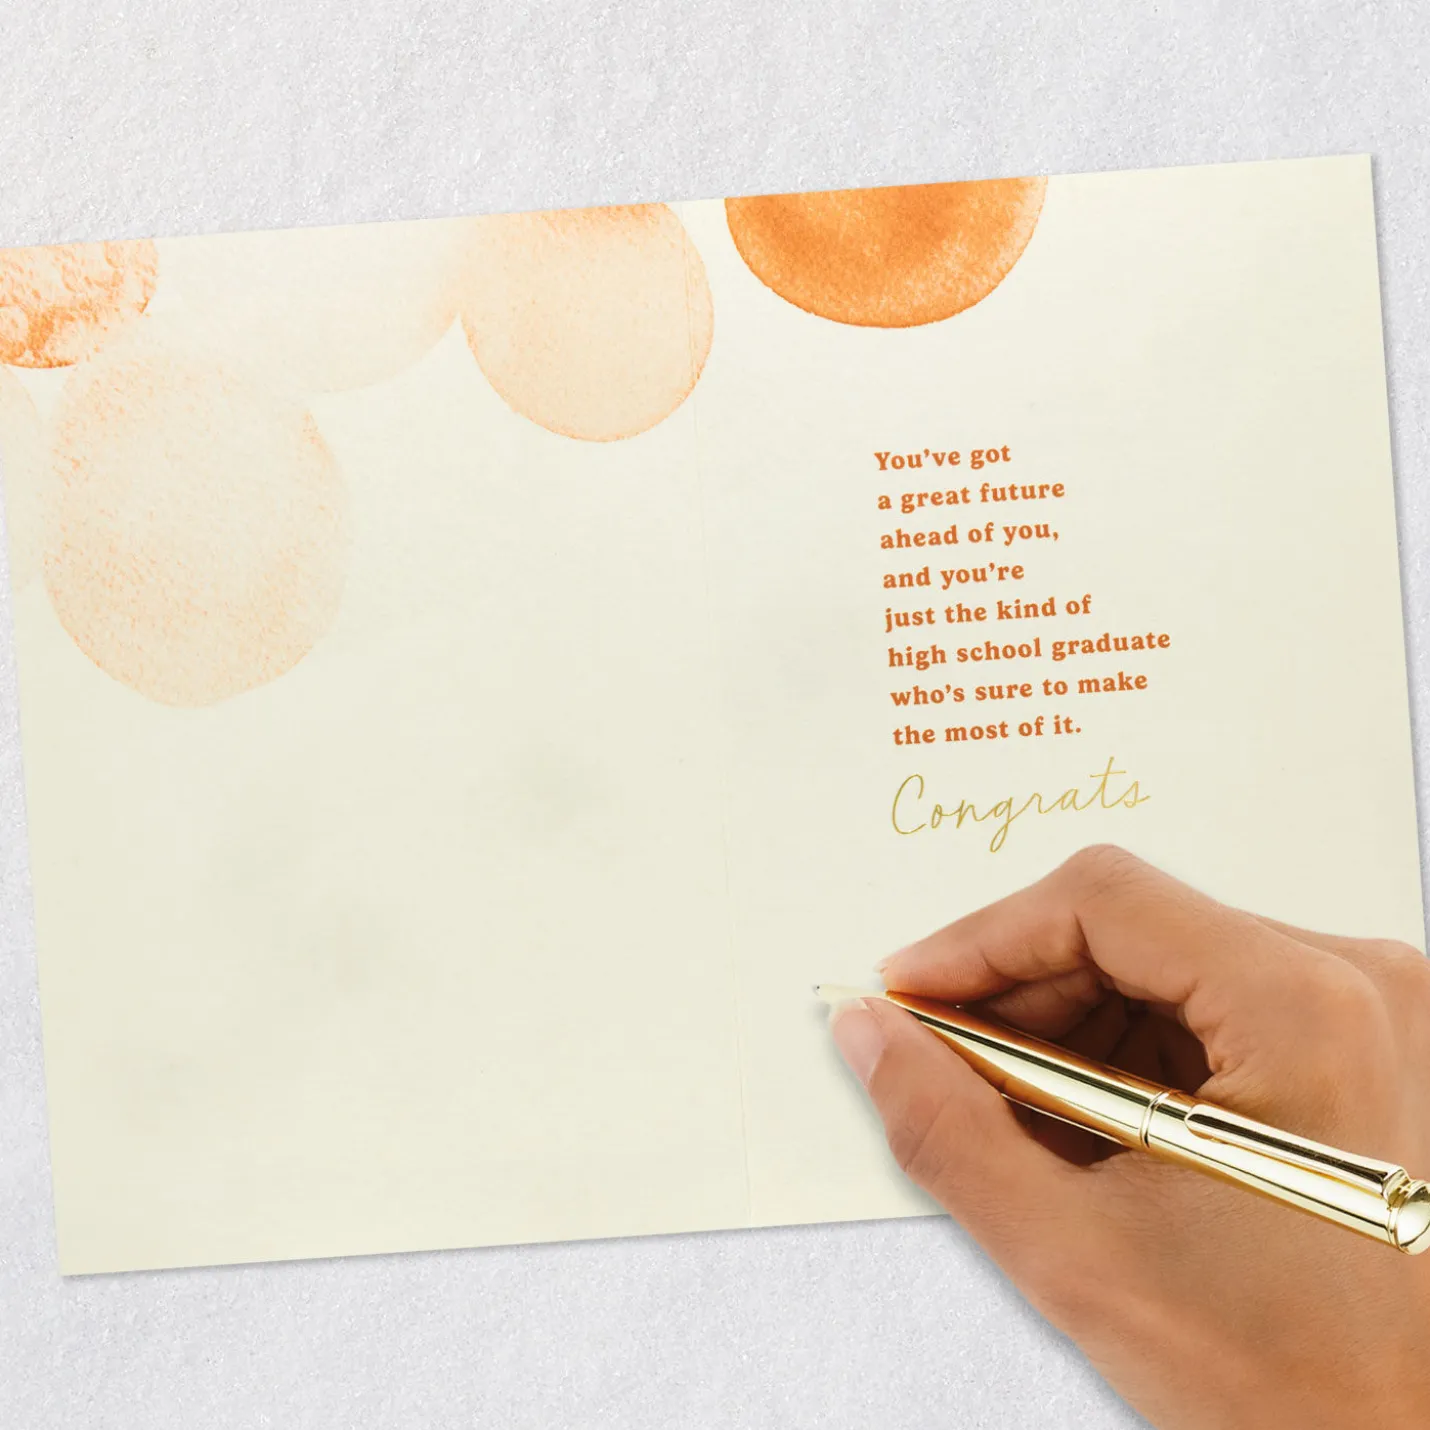 You’ve got
a great future
ahead of you,
and you’re
just the kind of
high school graduate
who’s sure to make
the most of it.
Congrats